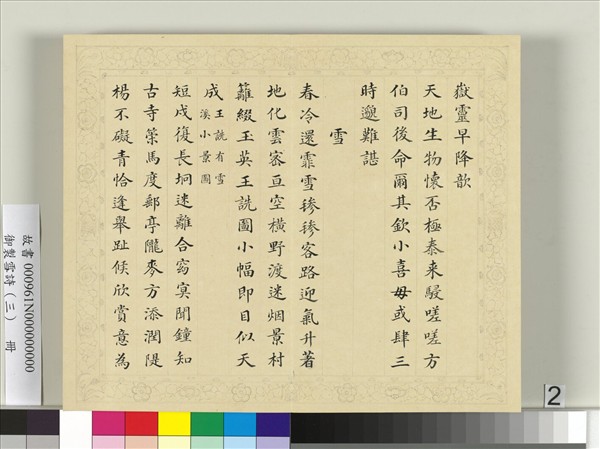 嶽靈早降歆
天地生物懷否極泰来騣嗟嗟方
伯司後命爾其欽小喜毋或肆三
時邈難諶
雪
春冷還霏雪㣎㣎客路迎氣升著
地化雲宻亘空横野渡迷烟景村
籬綴玉英王詵圖小幅即目似天
成
王詵有雪
溪小景圖
短戍復長坰迷離合窈冥聞鐘知
古寺縈馬度郵亭隴麥方添潤隄
楊不礙青恰逢舉趾候欣賞意為
故書 000961N000000000
御製雪詩（三） 冊
2